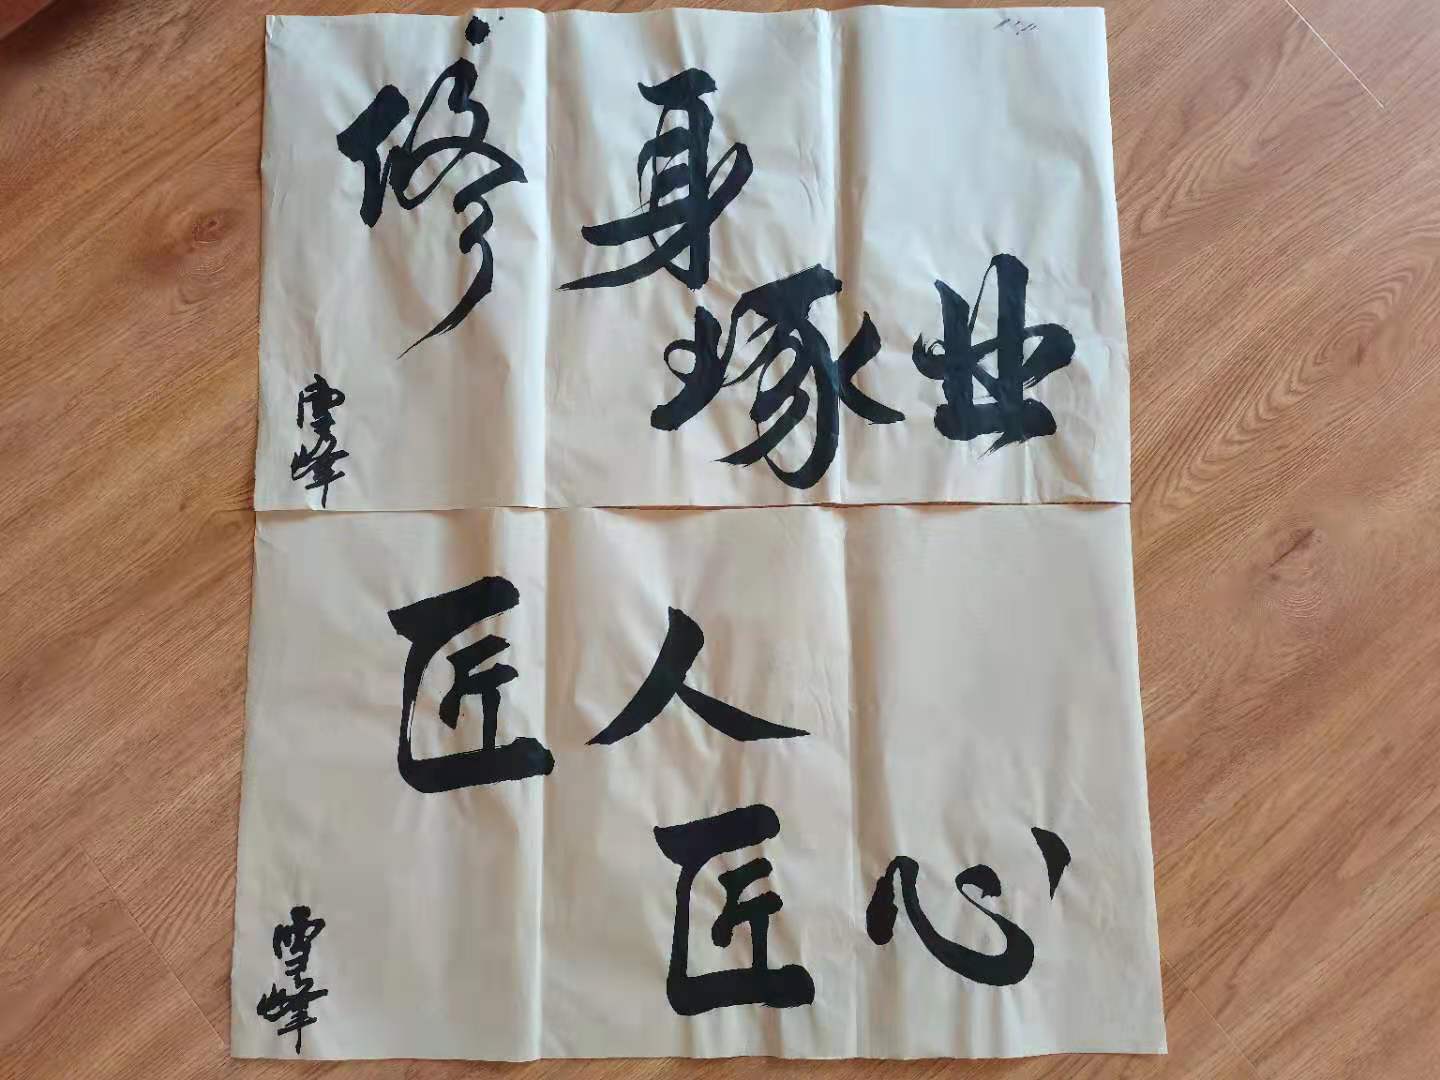 修身
琢业
雪峰
匠人
匠心
雪峰